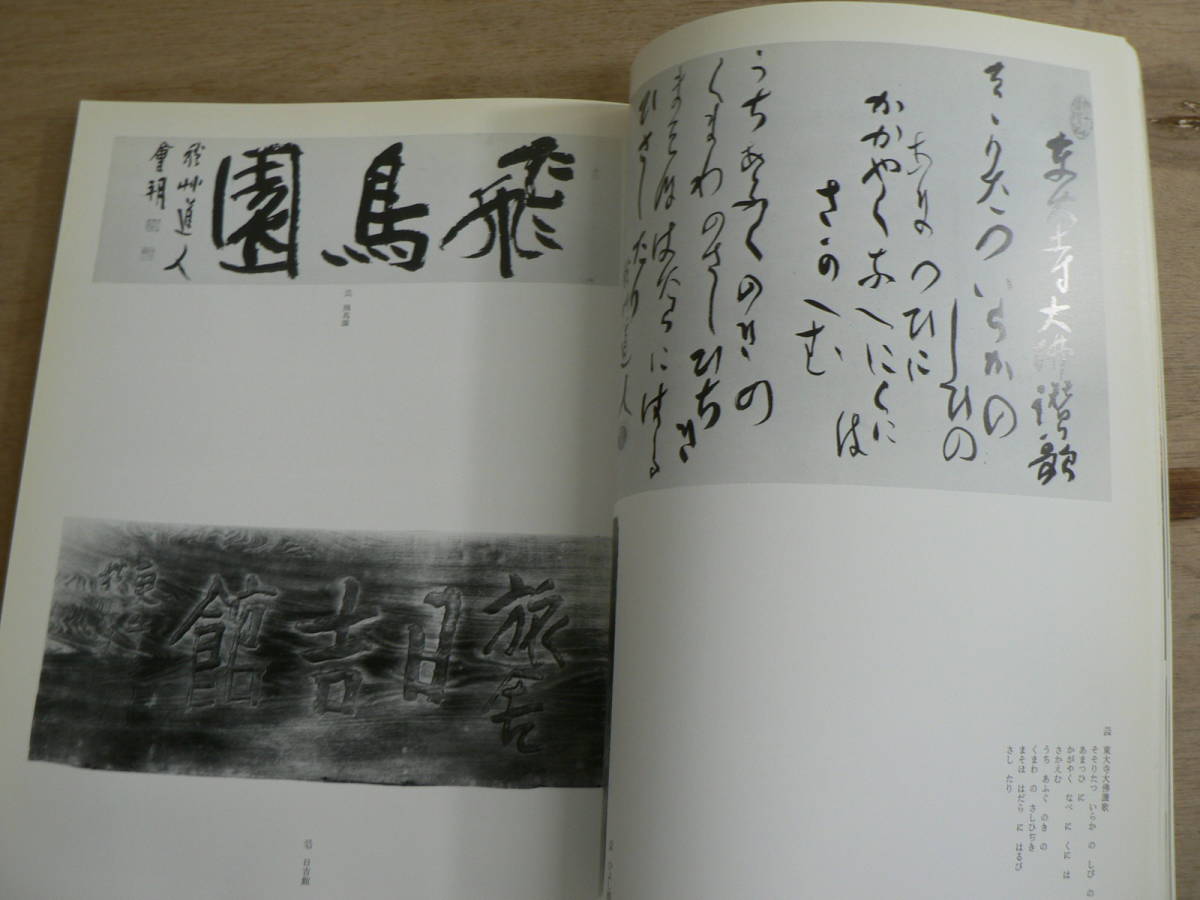 東大寺大佛讃歌
そゝりたついらかの
しひの
あまつひに
かかやくなへにくに
は
さかへむ
うちあふくのきの
くまわのさしひちき
まそほはたらにはる
ひさしたり
秋艸道人
東大寺大佛讃歌
そそりたつ いらか の しび の
あまつひ に
かがやく なべ に くに は
さかえむ
うち あふぐ のき の
くまわ の さしひぢき
まそほ はだら に はるび
さし たり
飛鳥園
秋艸道人
飛鳥園
旅舎
日吉館
日吉館